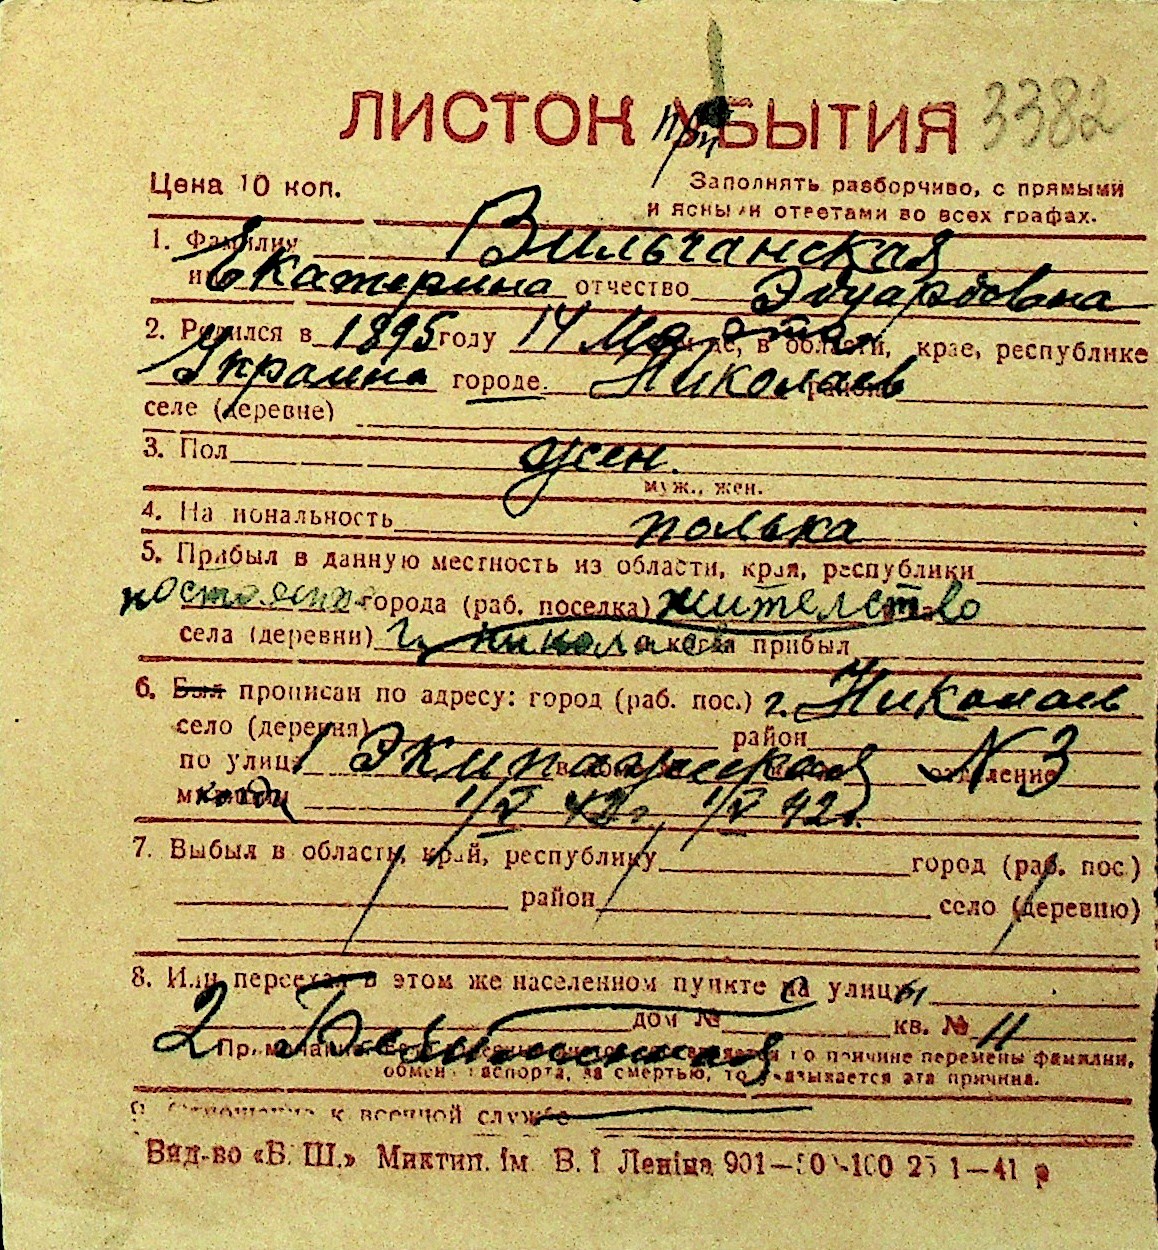 ЛИСТОК УБЫТИЯ 3382
при
Цена 10 коп.
Заполнять разборчиво, с прямыми
и ясными ответами во всех графах.
1. Фамилия Вильчанская
имя Екатерина отчество Эдуардовна
2. Родился в 1895 году 14 Марта в области, крае, республике
Украина городе Николаев районе
селе (деревне)
3. Пол жен.
муж., жен.
4. Национальность полька
5. Прибыл в данную местность из области, края, республики
постоян. города (раб. поселка) жителство
села (деревни) г. николаев и когда прибыл
6. Был прописан по адресу: город (раб. пос.) г. Николаев
село (деревня) район
по улице 1 Экипажеская N 3 отделение
милиции когда 1/V 42 г, 1/V 42 г.
7. Выбыл в область, край, республику город (раб. пос.)
район село (деревню)
8. Или переехал в этом же населенном пункте на улицу
дом № кв. № 11
2
Примечание по причине перемены фамилии,
обмена паспорта, за смертью, то указывается эта причина.
9. Отношение к военной службе
Вид-во «Б. Ш.» Миктип. ім. В. І. Леніна 901—50 -100 25 1—41 р